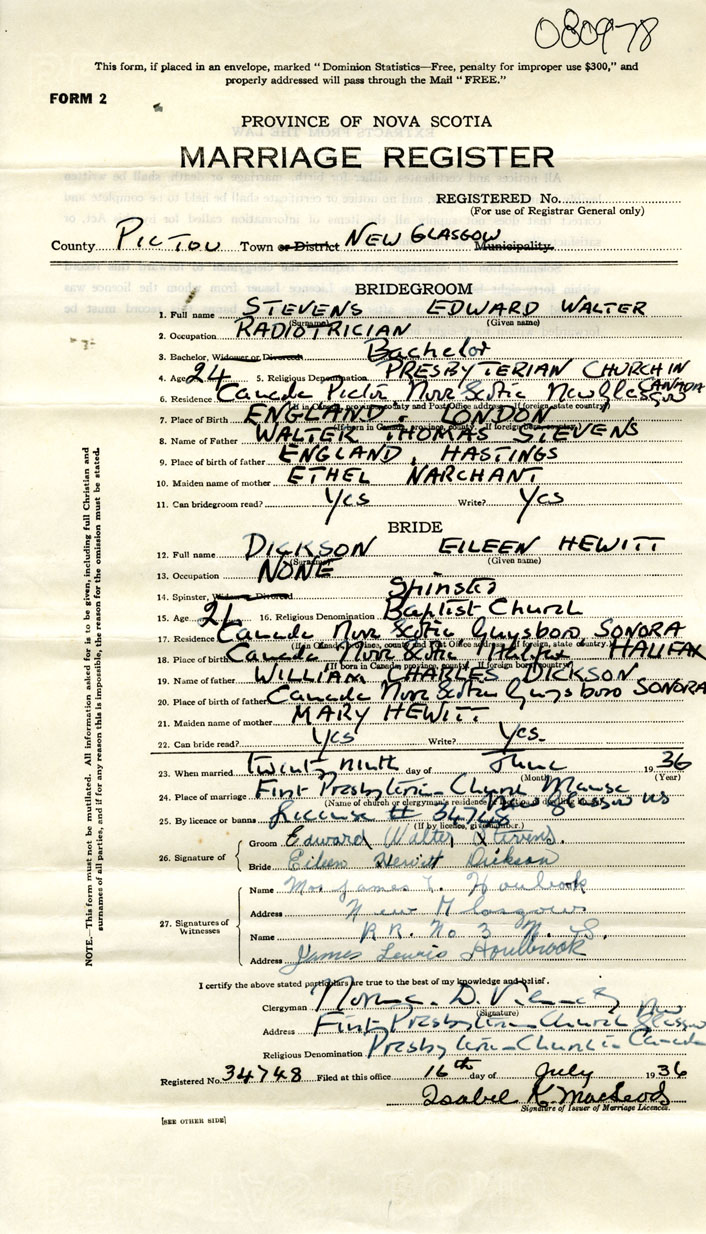 080978
This form, if placed in an envelope, marked "Dominion Statistics—Free, penalty for improper use $300," and
properly addressed will pass through the Mail "FREE."
FORM 2
PROVINCE OF NOVA SCOTIA
MARRIAGE REGISTER
REGISTERED No.
(For use of Registrar General only)
County PICTOU Town or District NEW GLASGOW Municipality.
BRIDEGROOM
1. Full name STEVENS EDWARD WALTER
(Surname) (Given name)
2. Occupation RADIOTRICIAN
3. Bachelor, Widower or Divorced Bachelor
4. Age 24 5. Religious Denomination PRESBYTERIAN CHURCH IN CANADA
6. Residence Canada Pictou Nova Scotia New Glasgow
(If in Canada, province, county and Post Office address. If foreign, state country)
7. Place of Birth ENGLAND. LONDON
(If born in Canada, province, county. If foreign born, country)
8. Name of Father WALTER THOMAS STEVENS
9. Place of birth of father ENGLAND, HASTINGS
10. Maiden name of mother ETHEL NARCHANT
11. Can bridegroom read? Yes Write? Yes
BRIDE
12. Full name DICKSON EILEEN HEWITT
(Surname) (Given name)
13. Occupation NONE
14. Spinster, Widow or Divorced Spinster
15. Age 21 16. Religious Denomination Baptist Church
17. Residence Canada Nova Scotia Guysboro SONORA
(If in Canada, province, county and Post Office address. If foreign, state country.)
18. Place of birth Canada Nova Scotia Halifax HALIFAX
(If born in Canada, province, county. If foreign born, country)
19. Name of father WILLIAM CHARLES DICKSON
20. Place of birth of father Canada Nova Scotia Guysboro SONORA
21. Maiden name of mother MARY HEWITT
22. Can bride read? Yes Write? Yes.
23. When married Twenty-ninth day of June 1936
(Month) (Year)
24. Place of marriage First Presbyterian Church Manse
(Name of church or clergyman's residence New Glasgow NS
25. By licence or banns License # 34748
(If by licence, give number.)
26. Signature of
Groom Edward Walter Stevens.
Bride Eileen Hewitt Dickson
27. Signatures of Witnesses
Name Mrs James L. Houlbrook
Address New Glasgow
Name R.R. No 3 N.S.
Address James Lewis Houlbrook
I certify the above stated particulars are true to the best of my knowledge and belief.
Clergyman Norman D.
(Signature)
Address First Presbyterian Church New Glasgow
Religious Denomination Presbyterian Church in Canada
Registered No. 34748 Filed at this office 16th day of July 1936
Isabel K. MacLeod
Signature of Issuer of Marriage Licences.
[SEE OTHER SIDE]
NOTE.—This form must not be mutilated. All information asked for is to be given, including full Christian and
surnames of all parties, and if for any reason this is impossible, the reason for the omission must be stated.